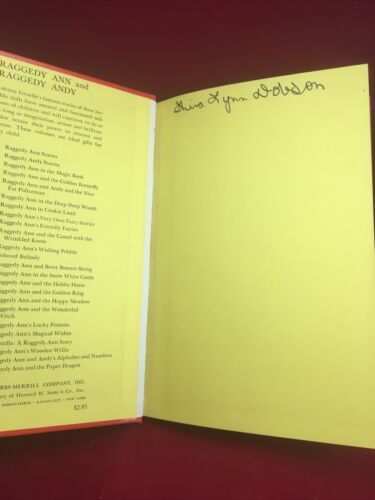 RAGGEDY ANN and
RAGGEDY ANDY
Johnny Gruelle's famous stories of these
dolls have amused and fascinated
of children and will continue to do so
long as imagination, action and brilliant
retain their power to interest and
These volumes are ideal gifts for
child.
Raggedy Ann Stories
Raggedy Andy Stories
Raggedy Ann in the Magic Book
Raggedy Ann and the Golden Butterfly
Raggedy Ann and Andy and the Nice
Fat Policeman
Raggedy Ann in the Deep Deep Woods
Raggedy Ann in Cookie Land
Raggedy Ann's Very Own Fairy Stories
Raggedy Ann's Friendly Fairies
Raggedy Ann and the Camel with the
Wrinkled Knees
Raggedy Ann's Wishing Pebble
eloved Belindy
aggedy Ann and Betsy Bonnet String
aggedy Ann in the Snow White Castle
aggedy Ann and the Hobby Horse
aggedy Ann and the Golden Ring
aggedy Ann and the Happy Meadow
aggedy Ann and the Wonderful
Witch
aggedy Ann's Lucky Pennies
aggedy Ann's Magical Wishes
rcella: A Raggedy Ann Story
aggedy Ann's Wooden Willie
aggedy Ann and Andy's Alphabet and Numbers
aggedy Ann and the Paper Dragon
BBS-MERRILL COMPANY, INC.
ary of Howard W. Sams & Co., Inc.
INDIANAPOLIS · KANSAS CITY · NEW YORK
$2.95
Lynn Dobson